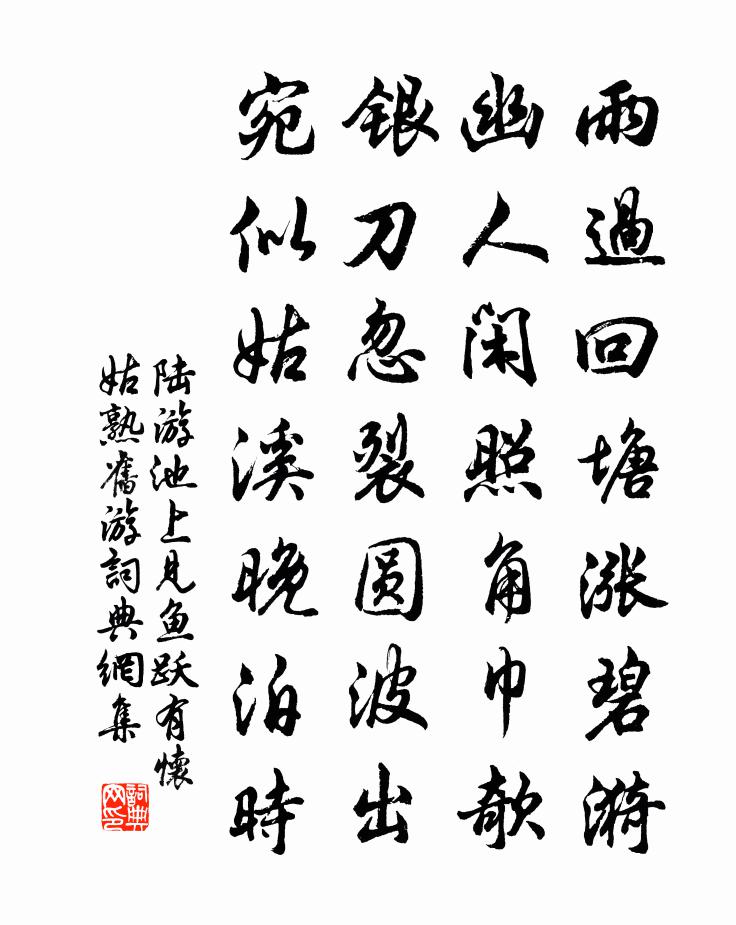 雨過回塘漲碧漪
幽人閑照角巾欹
銀刀忽裂圓波出
宛似姑溪晚泊時
陆游池上見鱼跃有懷
姑熟舊游詞典網集
詞典网印